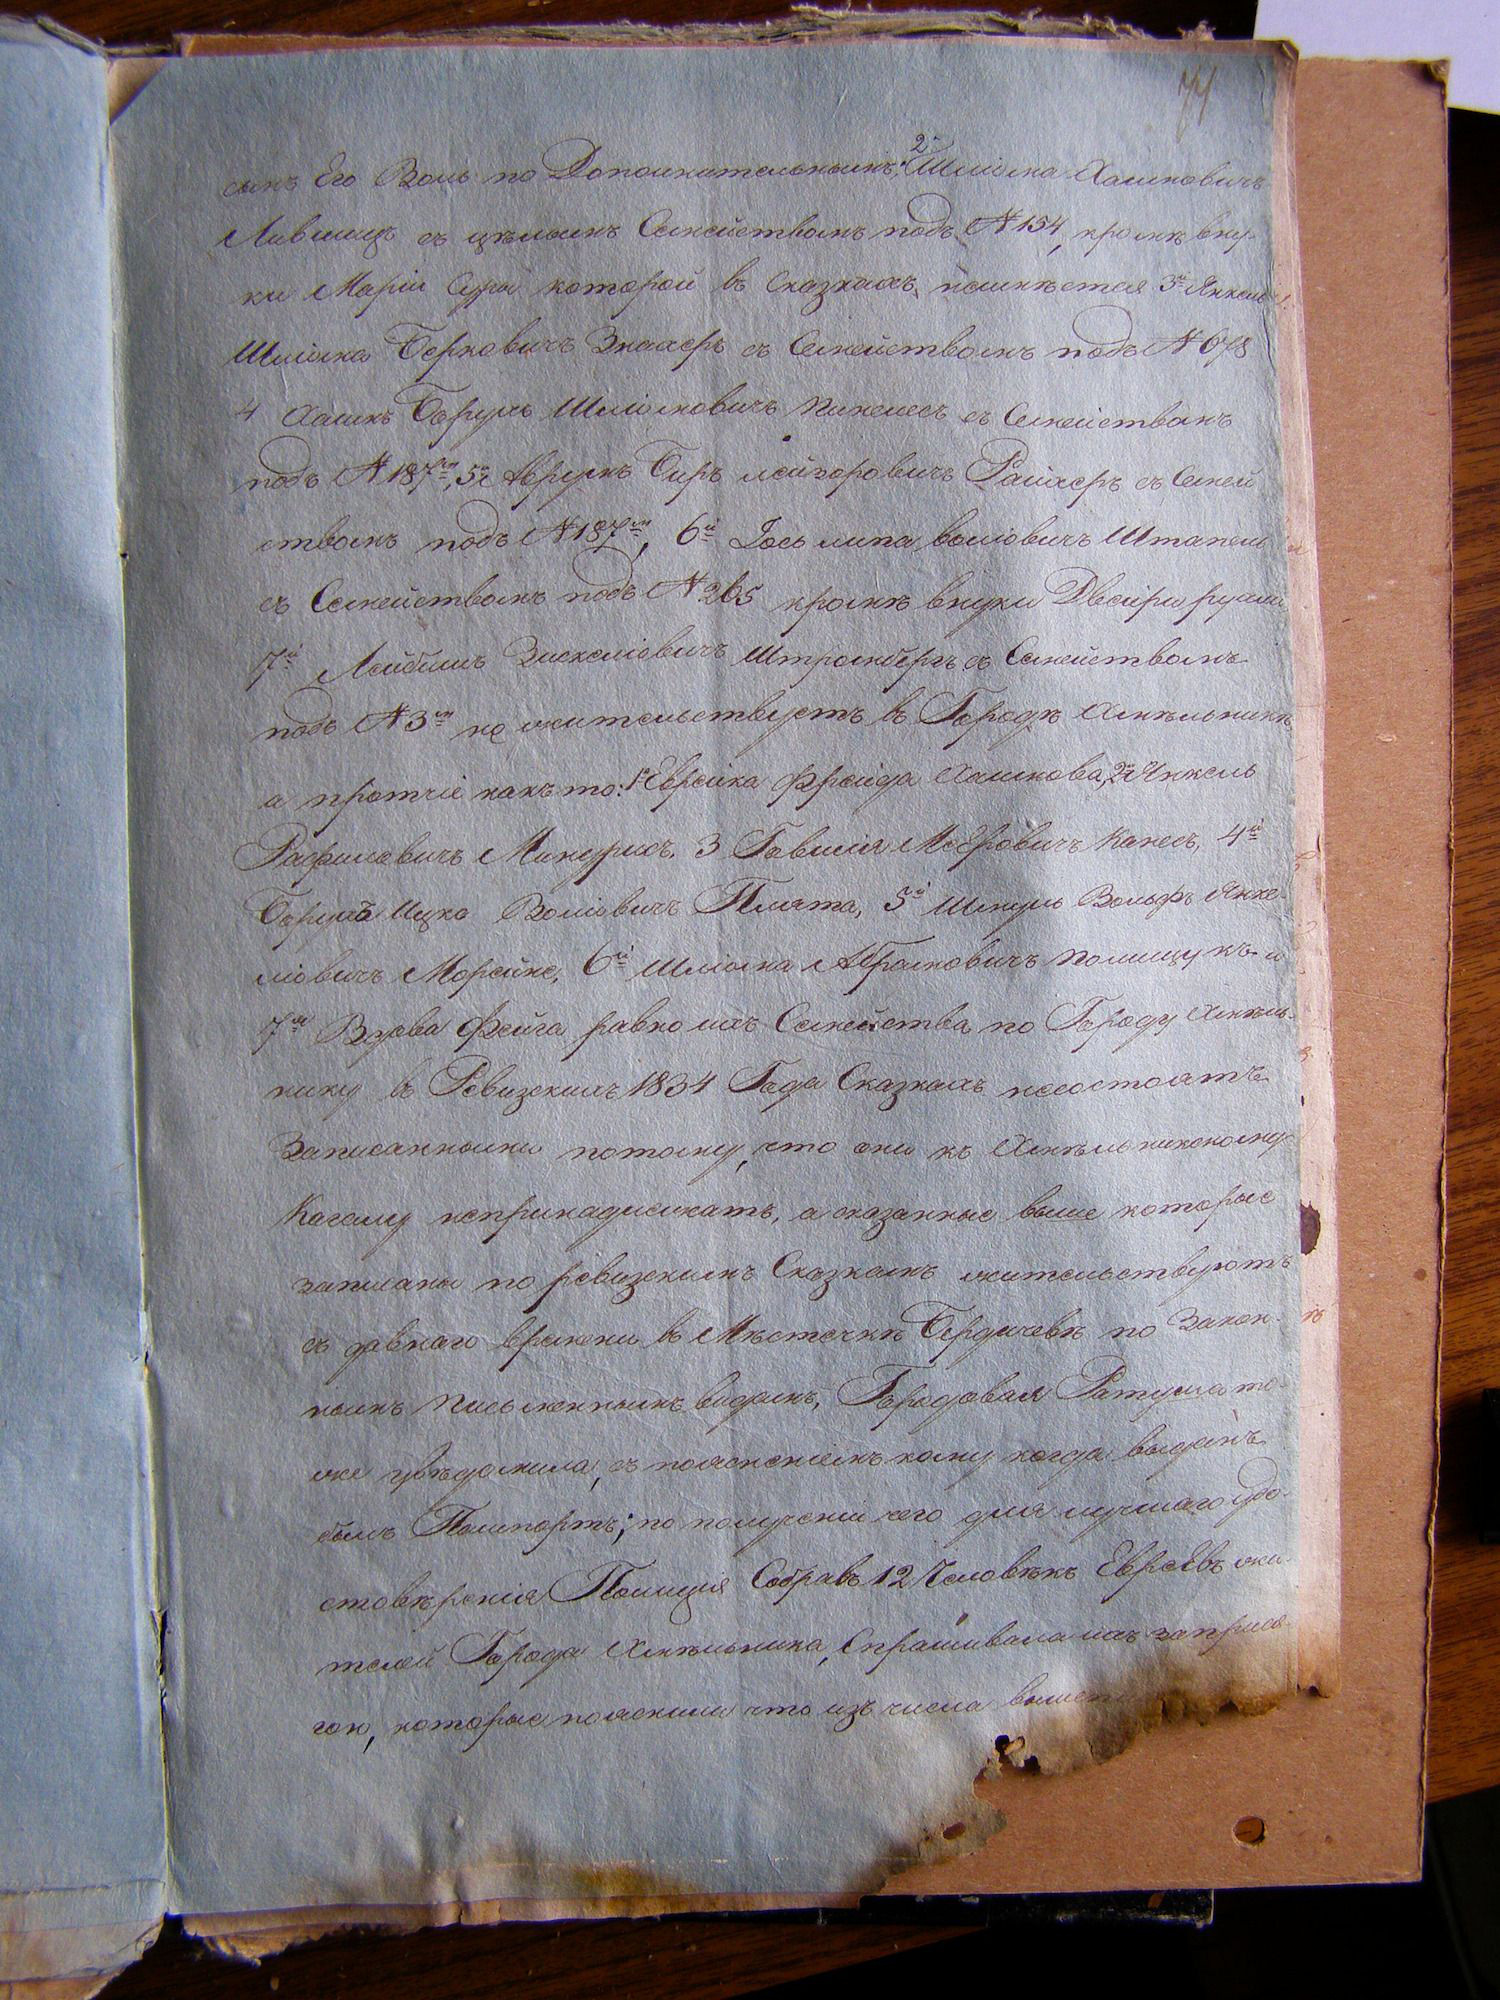 77
сынъ Его Воль по Дополнительнымъ, 2й Шліома Хаимовичъ
Лившицъ съ цѣлымъ Семействомъ подъ №154, кромѣ вну-
ки Маріи Суры которой въ Сказкахъ неимѣется 3й Янкель
Шліома Берковичъ Знахеръ съ Семействомъ подъ №678
4 Хаимъ Борухъ Шліомовичъ Пинелесъ съ Семействомъ
подъ №187мъ, 5й Аврумъ Беръ Лейзоровичъ Райхеръ съ Семей
ствомъ подъ №187мъ, 6й Іось Липа Воліовичъ Штапель
съ Семействомъ подъ №265 кромѣ внуки Двейри
7й Лейбишъ Зискеліовичъ Штромбергъ съ Семействомъ
подъ №3мъ не жительствуетъ въ Городѣ Хмѣльникѣ
а протчіе какъ то: 1й Еврейка Фрейда Хаимова, 2й Янкель
Рафиловичъ 3 Гавшія Канесъ, 4й
Борухъ Ицко Воліовичъ Плята, 5й Шмуль Вольфъ Янке-
ліовичъ 6й Шліома Абрамовичъ Полищукъ и
7я Вдова Фейга равно ихъ Семейства по Городу Хмѣль-
нику въ Ревизскихъ 1834 Года Сказкахъ несостоятъ
Записанными потому, что они къ Хмѣльникскому
Кагалу непринадлежатъ, а сказанные выше которые
записаны по ревизскимъ Сказкамъ жительствуютъ
съ давнаго времени въ Мѣстечкѣ Бердичевѣ по Закон-
нымъ письменнымъ видамъ, Городовая Ратуша то-
же увѣдомила, съ поясненіемъ кому когда выданъ
былъ Пашпортъ; по полученіи чего для лучшаго удо-
стовѣренія Полиція Собравъ 12 Человѣкъ Евреевъ жи-
телей Города Хмѣльника, Спрашивала ихъ заприся-
гою, которые пояснили что изъ числа